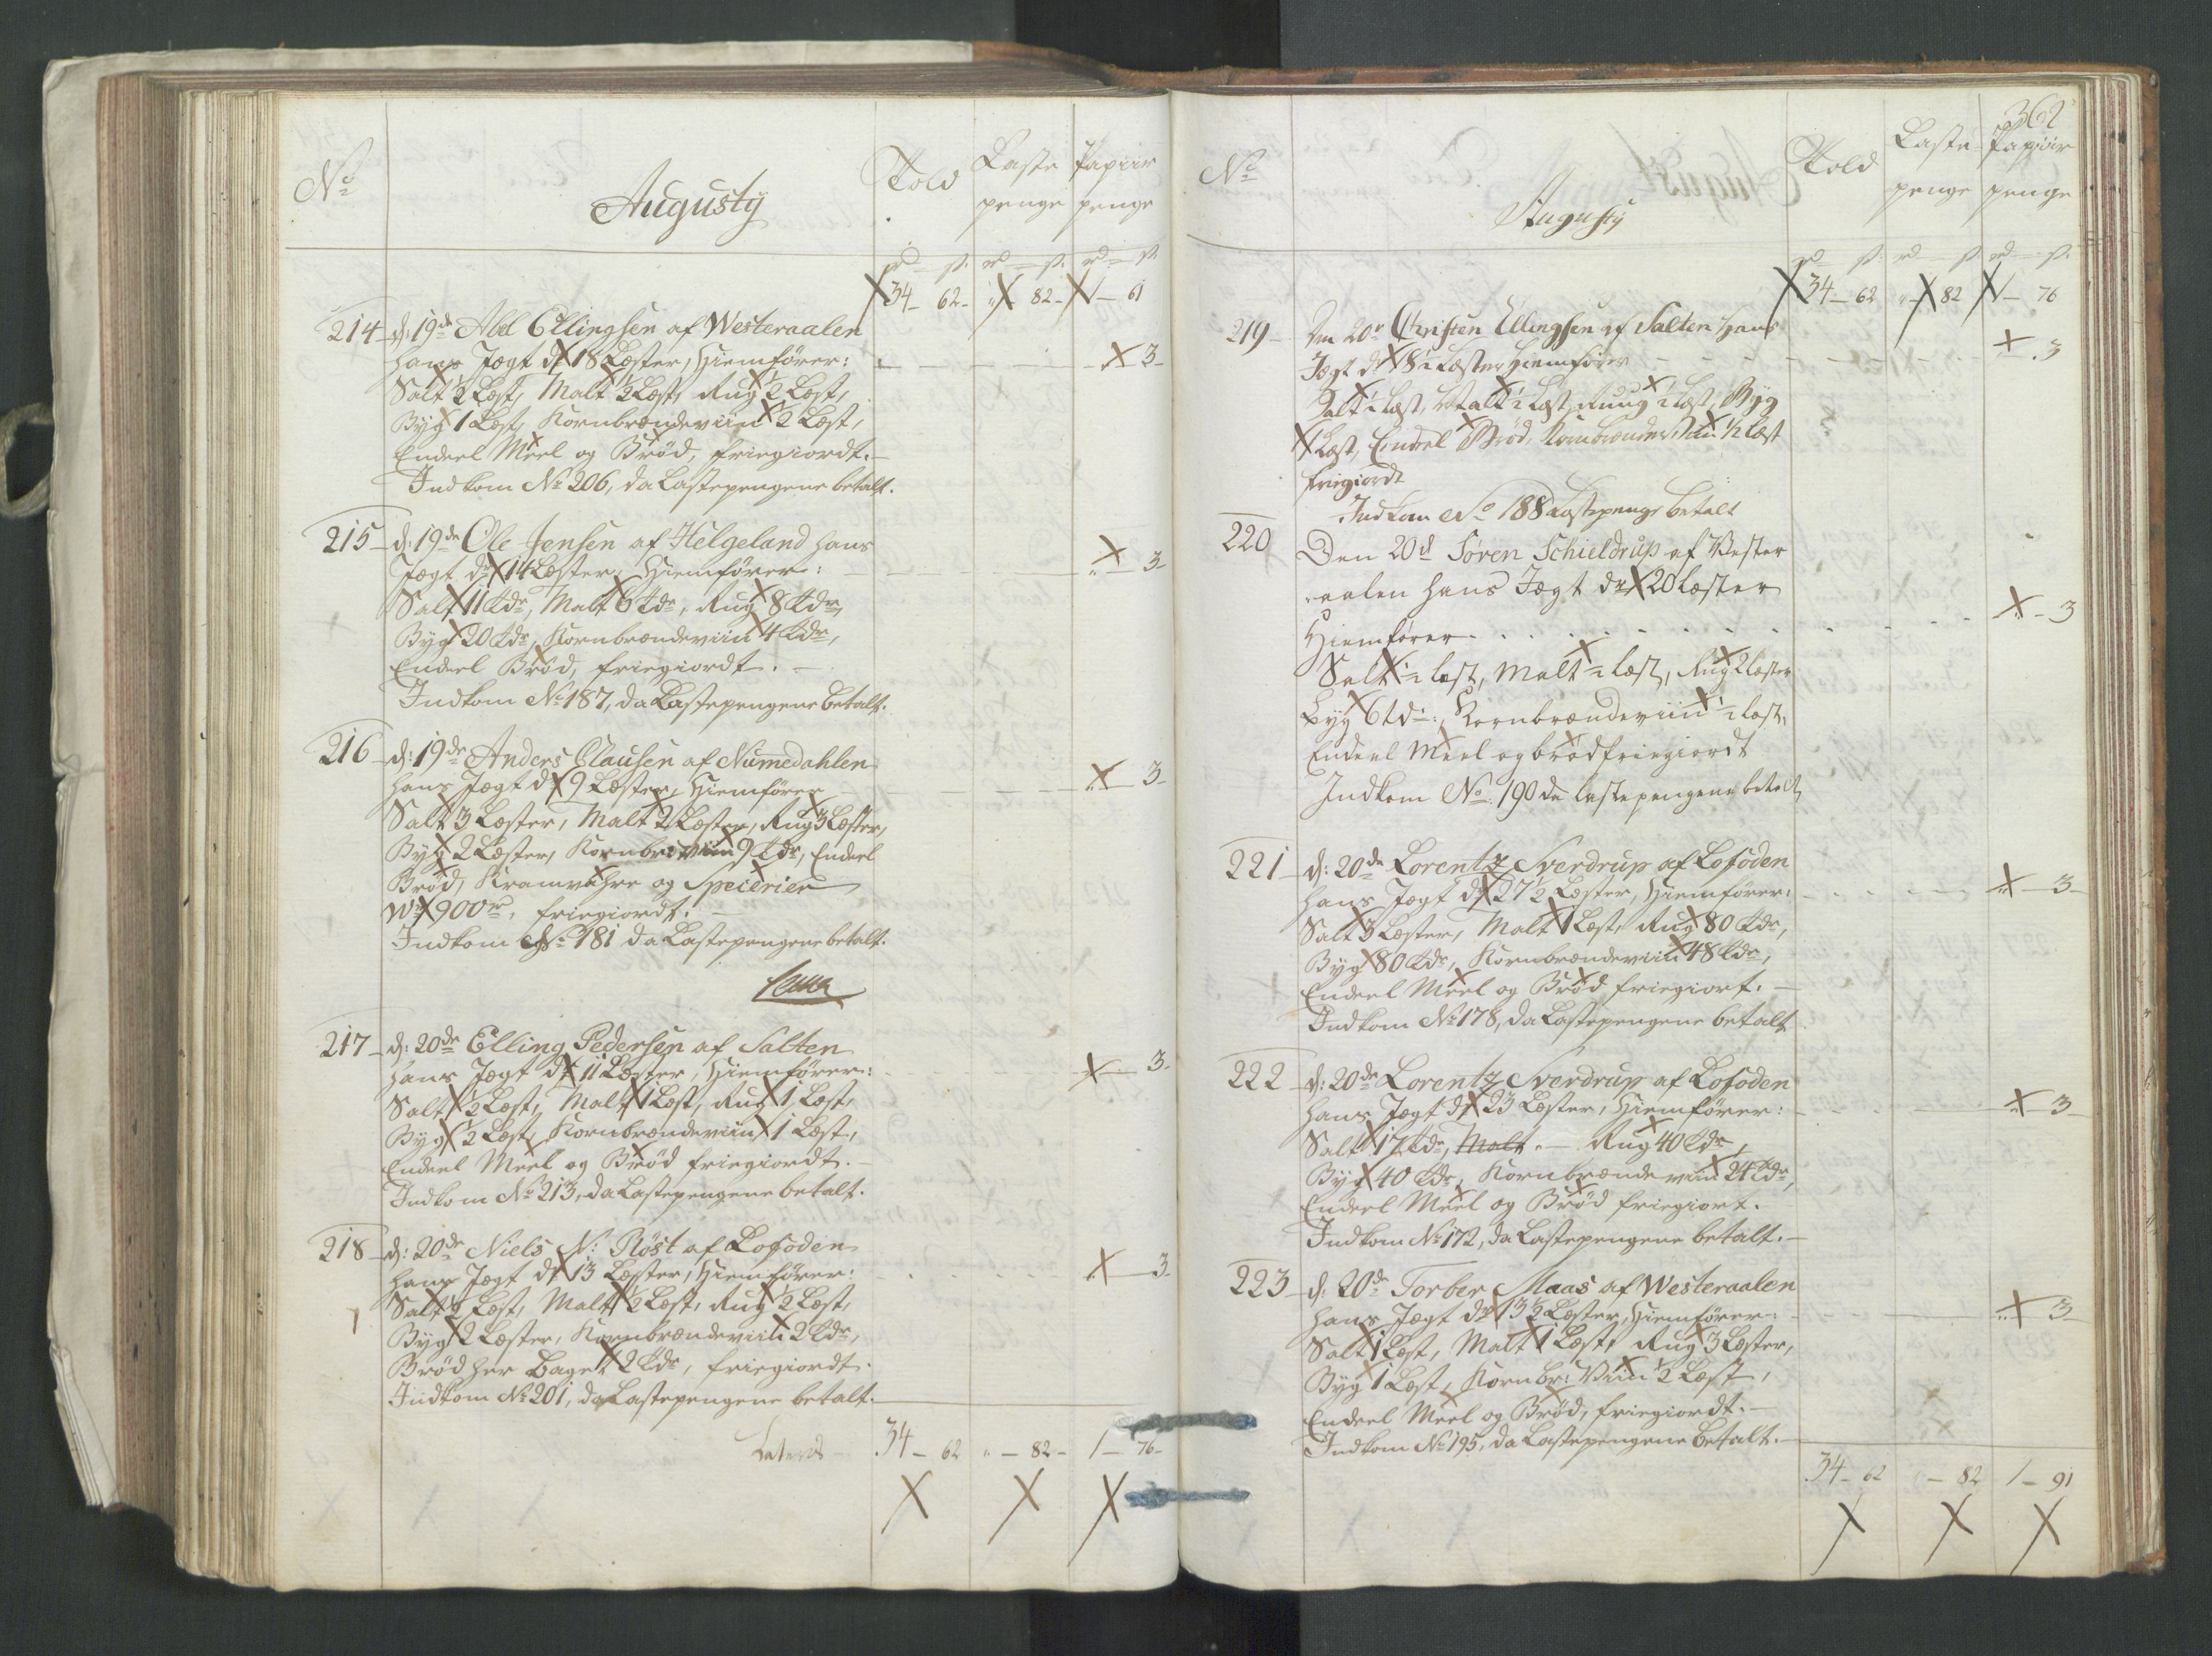 No
Augustÿ
Told
Laste penge
Papiir penge
rd — s. rd — s. rd — s.
34 — 62 - " — 82 - 1 — 61
214 d: 19de Abel Ellingsen af Westeraalen
hans Jægt dr 18 Læster, Hiemfører: " — 3 -
Salt ½ Læst, Malt ½ Læst, Rug ½ Læst,
Byg 1 Læst, Kornbrændeviin ½ Læst,
Endeel Meel og Brød, friegiordt. —
Indkom No 206, da Lastepengene betalt.
215 d: 19de Ole Jensen af Helgeland hans
Jægt dr 14 Læster, Hiemfører: " — 3 -
Salt 11 tdr, Malt 6 tdr, Rug 8 tdr,
Byg 20 tdr, Kornbrændeviin 4 tdr,
Endeel Brød, friegiordt. —
Indkom No 187, da Lastepengene betalt.
216 d: 19de Anders Clausen af Numedahlen
hans Jægt dr 9 Læster, Hiemfører " — 3 -
Salt 3 Læster, Malt 2 Læster, Rug 3 Læster,
Byg 2 Læster, Kornbr: viin 9 tdr, Endeel
Brød, Kramvahre og Specerier
900 friegiordt. —
Indkom No 181 da Lastepengene betalt.
217 d: 20de Elling Pedersen af Salten
hans Jægt dr 11 Læster, Hiemfører: — 3 -
Salt ½ Læst, Malt 1 Læst, Rug 1 Læst,
Byg ½ Læst, Kornbrændeviin 1 Læst,
Endeel Meel og Brød friegiordt. —
Indkom No 213, da Lastepengene betalt.
218 d: 20de Niels N: Röst af Lofoden
hans Jægt dr 13 Læster, Hiemfører: " — 3 -
Salt ½ Læst, Malt ½ Læst, Rug ½ Læst,
Byg 2 Læster, Kornbrændeviin 2 tdr,
Brød her Baget 2 tdr, friegiordt.
Indkom No 201, da Lastepengene betalt.
Laterat 34 — 62 " — 82 - 1 — 76 -
362
No
Augustÿ
Told
Laste penge
Papiir penge
rd — s. rd — s. rd — s.
34 — 62 " — 82 1 — 76
219 Den 20de Christen Ellingsen af Salten hans
Jægt dr 8½ Læster hiemfører — 3
Salt ½ Læst, Malt ½ Læst, Ruug ½ Læst, Byg
1 Læst, Endeel Brød, Kornbrændeviin ½ Læst
friegiordt
Indkom No 188 Lastepenge betalt
220 Den 20d Sören Schieldrup af Vester
aalen hans Jægt dr 20 læster
Hiemfører — 3
Salt ½ læst, Malt ½ læst, Rug 2 læster
Byg 6 tdr:, Kornbrændeviin ½ læst,
Endeel Meel og brød friegiordt
Indkom No. 190 da lastepengene betalt
221 d: 20de Lorentz Sverdrup af Lofoden
hans Jægt dr 27½ Læster, Hiemfører: " — 3 -
Salt 3 Læster, Malt 1 Læst, Rug 80 tdr,
Byg 80 tdr, Kornbrændeviin 48 tdr,
Endeel Meel og Brød friegiort. —
Indkom No 178, da Lastepengene betalt
222 d: 20de Lorentz Sverdrup af Lofoden
hans Jægt dr 23 Læster, Hiemfører: " — 3 -
Salt 17 tdr, Malt. — Rug 40 tdr,
Byg 40 tdr, Kornbrændeviin 24 tdr,
Endeel Meel og Brød friegiort.
Indkom No 172, da Lastepengene betalt. —
223 d: 20de Torber Maas af Westeraalen
hans Jægt dr 13½ Læster, Hiemfører: " — 3 -
Salt 1 Læst, Malt 1 Læst, Rug 3 Læster,
Byg 1 Læst, Kornbr: Viin ½ Læst,
Endeel Meel og Brød, friegiordt. —
Indkom No 195, da Lastepengene betalt. —
34 — 62 — 82 1 — 91